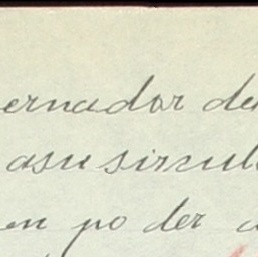 ernador de
asu sirsul
en po der